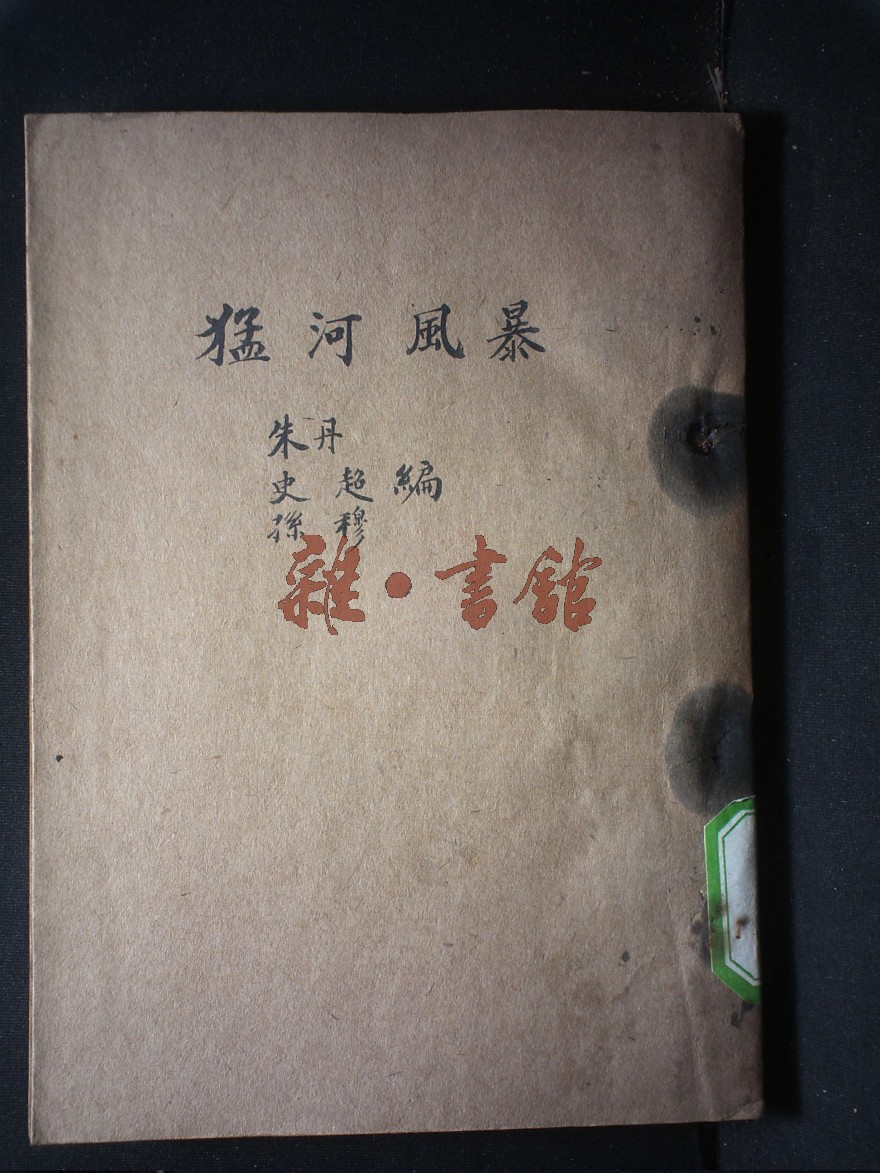 猛河風暴
朱丹
史超編
孫穆
雜·書館